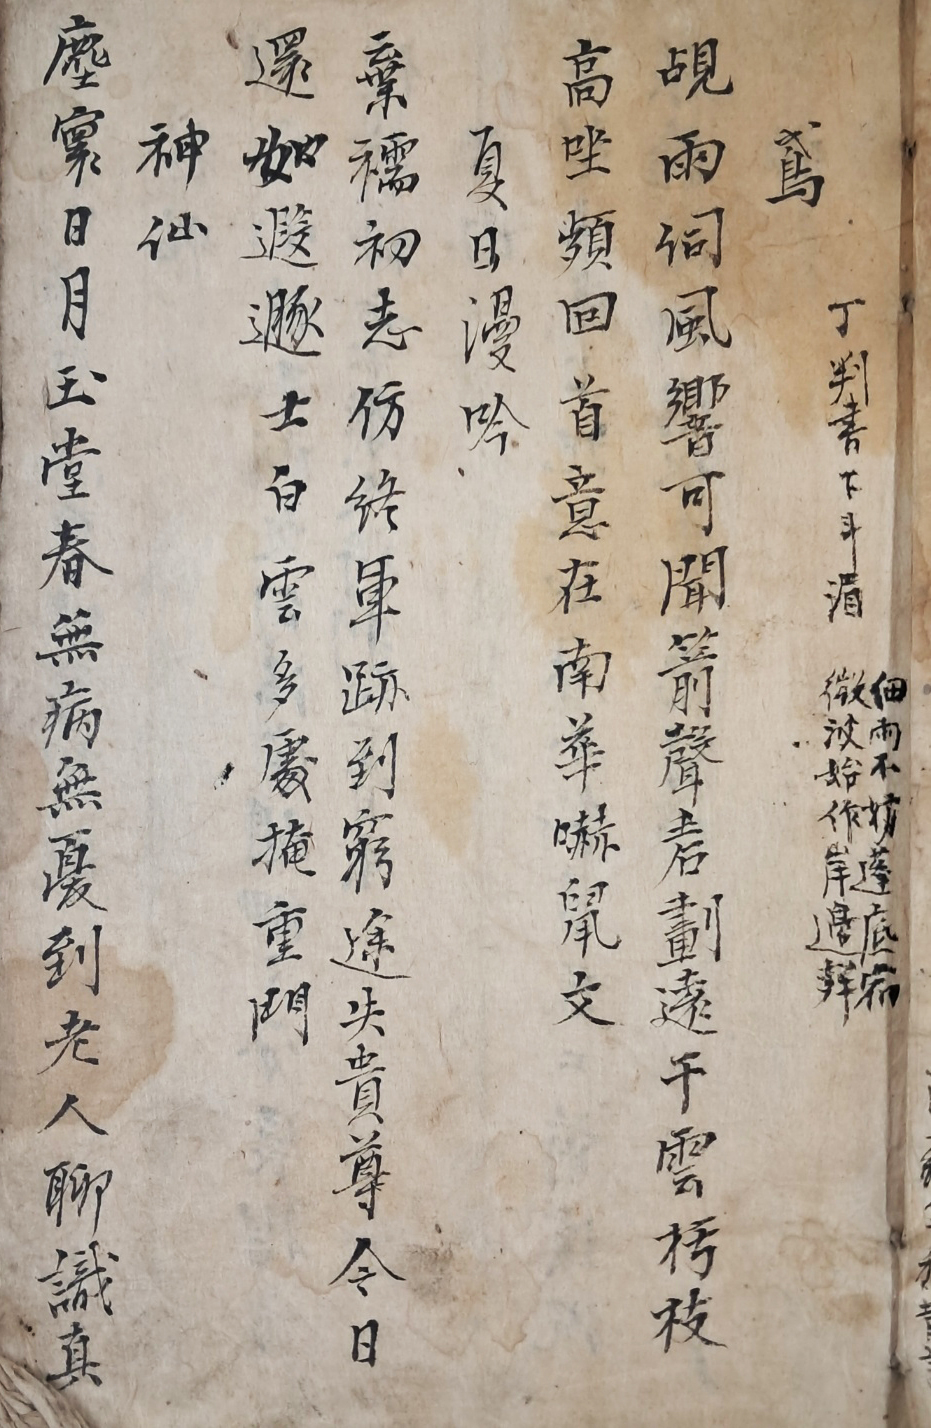 細雨不妨蓬底宿
微波始作岸邊鮮
丁判書大斗湄
鳶
覘雨伺風響可聞箭聲砉劃遠干雲枯枝
高坐頻回首意在南華嚇鼠文
夏日漫吟
棄襦初志仿終軍跡到窮途失貴尊今日
還如遐遯士白雲多處掩重門
神仙
塵寰日月玉堂春無病無憂到老人聊識真